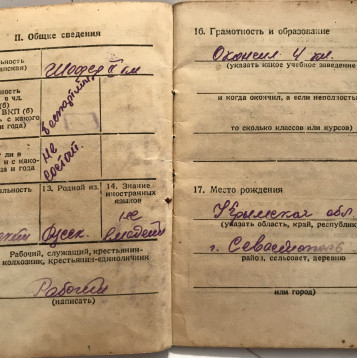 II. Общие сведения
льность
анская)
Шофер II кл
ность
в чл.
ВКП (б)
ВКП (б)
с какого
и года)
беспартийн
ли в
и с како-
ца и года
не
состоит.
альность
13. Родной яз.
14. Знание
иностранных
языков
Русск.
не
владеет
Рабочий, служащий, крестьянин-
колхозник, крестьянин-единоличник
Рабочий
(написать)
16. Грамотность и образование
Окончил 4 кл.
(указать какое учебное заведение
и когда окончил, а если неполность
то сколько классов или курсов)
17. Место рождения
Крымская обл.
(указать область, край, республик
г. Севастополь
район, сельсовет, деревню
или город)